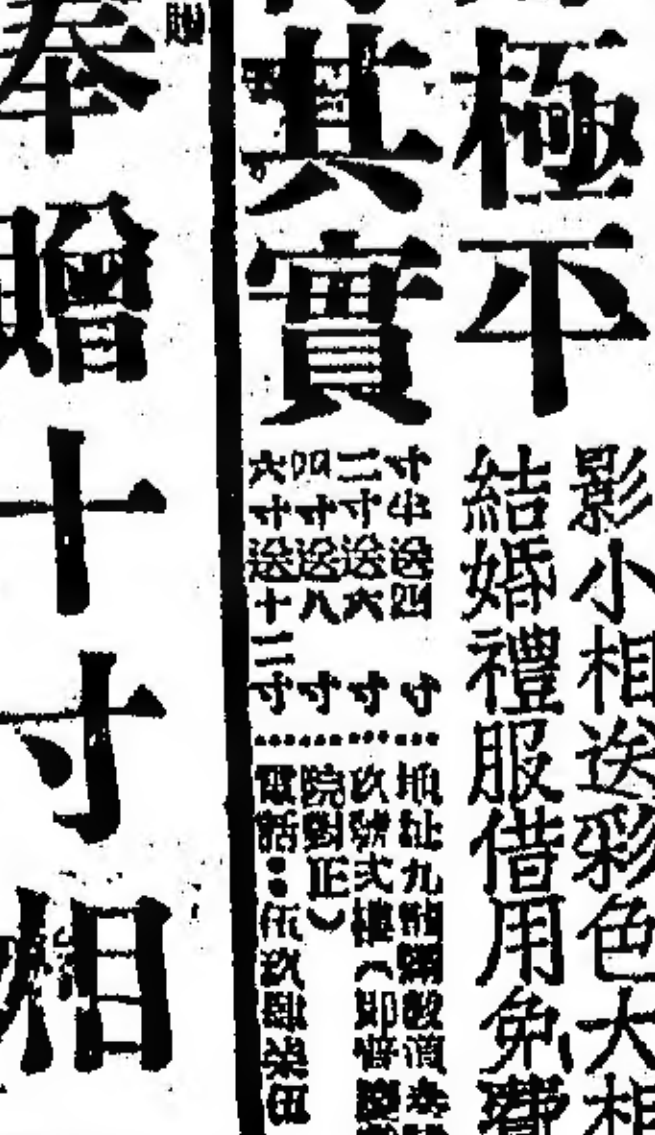 極平
影小相送彩色大相
結婚禮服借用免費
其實
寸半送四寸⋯
二寸送六寸⋯
四寸送八寸⋯
六寸送十二寸⋯
地址九龍
玖號弍樓(即
院對正)
電話:伍玖肆柒伍
奉贈十寸相